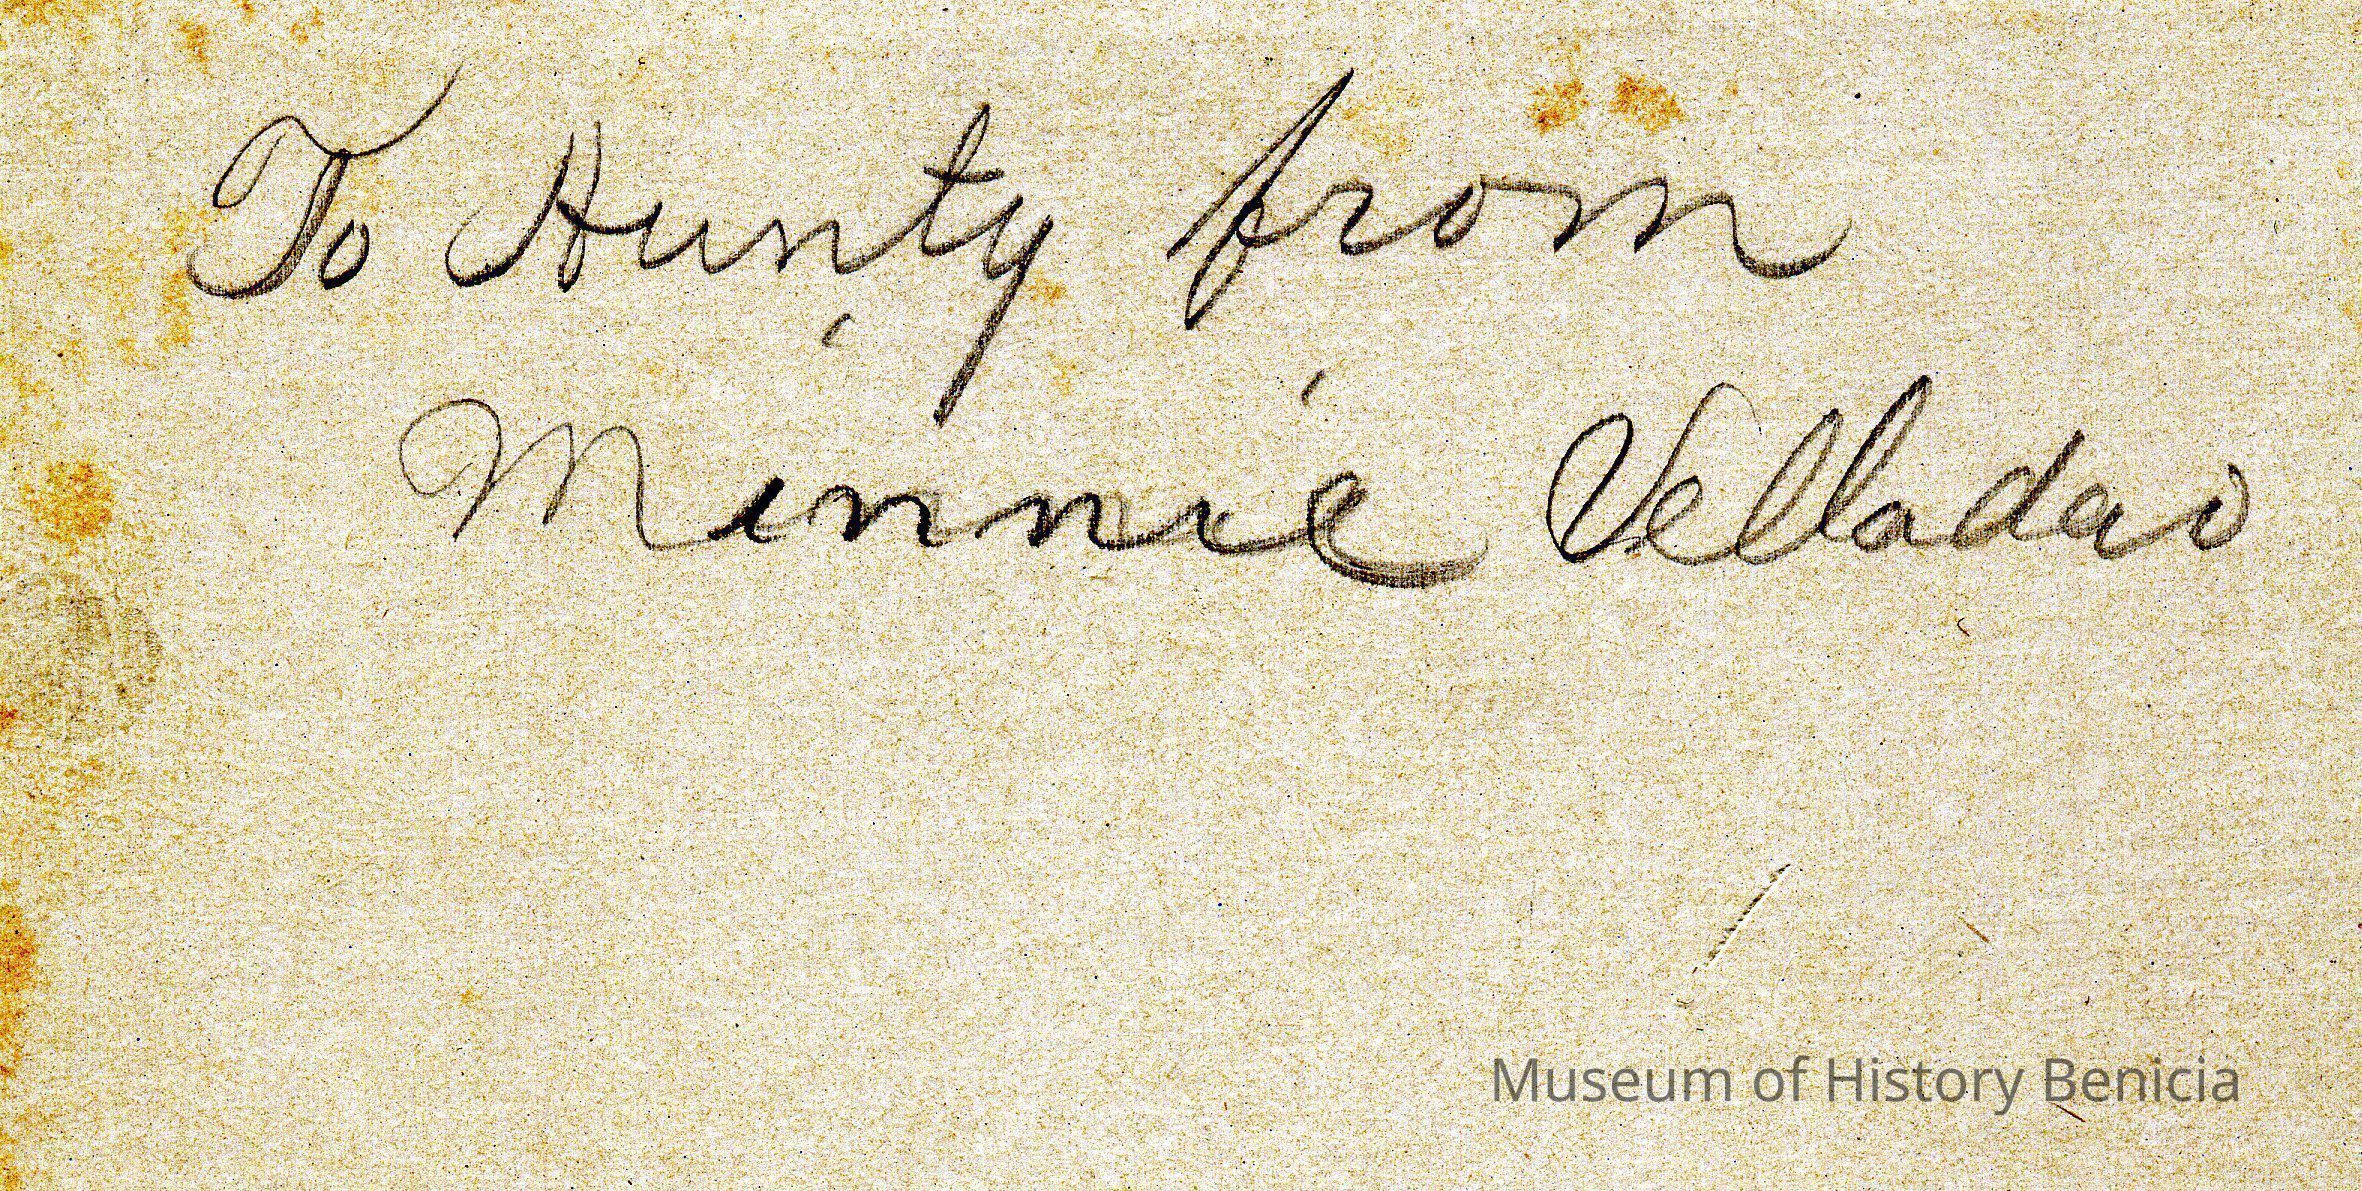 To Aunty from
Minnie Velladao
Museum of History Benicia